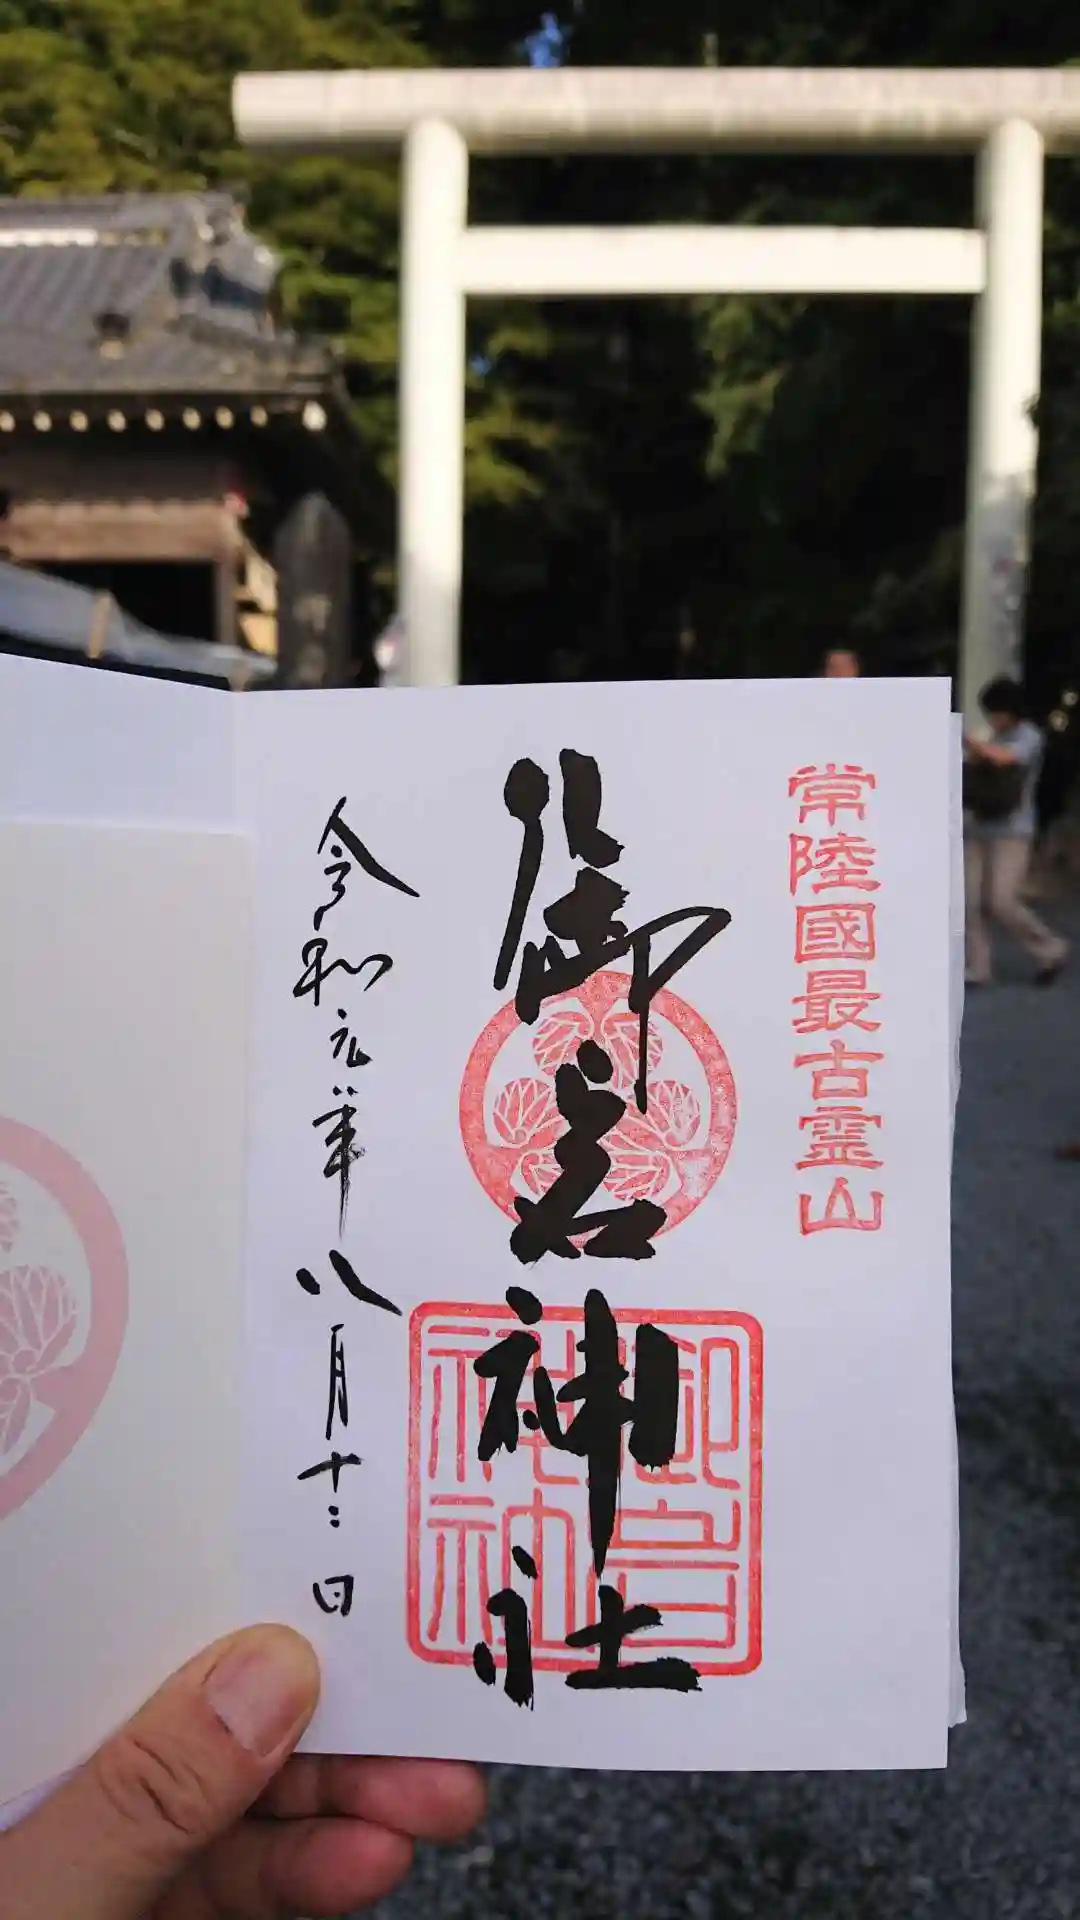 常陸國最古霊山
御岩神社
令和元年八月十二日